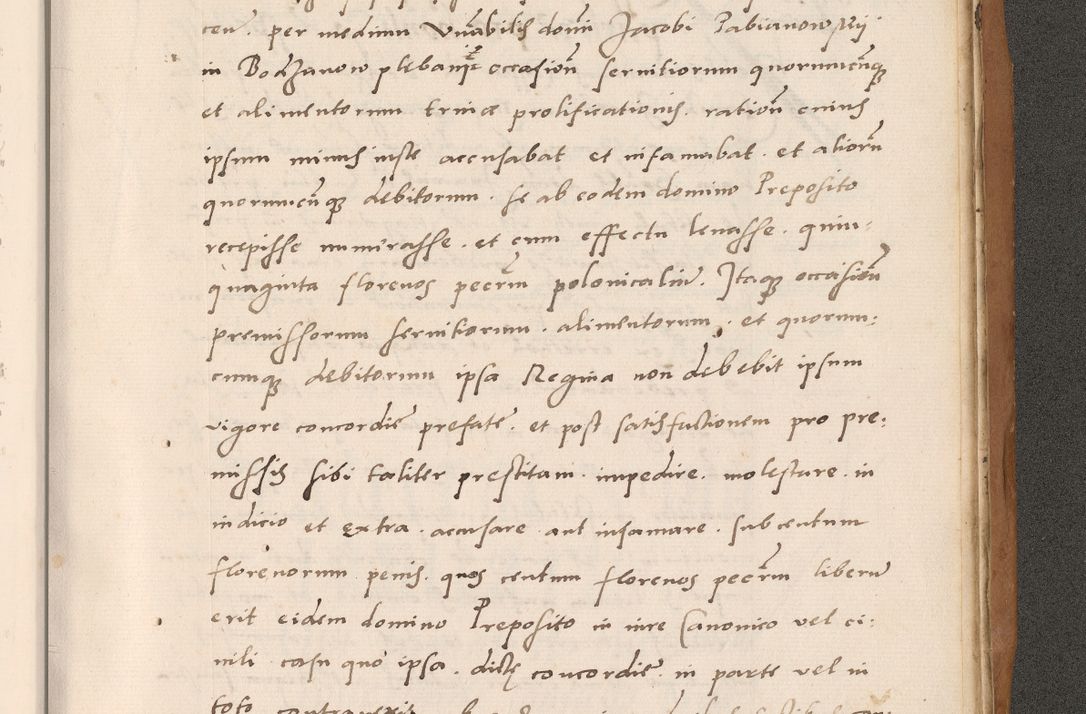 ceu. per medium Vnabilis domi Jacobi Pabianowsky
in Bodzanow plebani occasion serviliorum quorumcunque
et alimentorum trine prolificationis. ration cuius
ipsum minus iuste accusabat et infamabat. et aliorn
quorumcunque debitorum. se ab eodem domino Preposito
recepisse numerasse. et cum effectu levasse. quin-
quaginta florenos pecrm polonicaliu. Itaque occasion
premissorum servitiorum. alimentorum. et quorum:
cumque debitorum ipsa Regina non debebit ipsum
vigore concordie prefate. et post satisfactionem pro pre:
missis sibi taliter prestitam. impedire. molestare. in
indicio et extra. accusare aut infamare. sub centum
florenorum penis. quos centum florenos pecrm liberu
erit eidem domino Preposito in iure Canonico vel ci:
vili casu quo ipsa. dicte concordie in parte vel in
toto contravexit